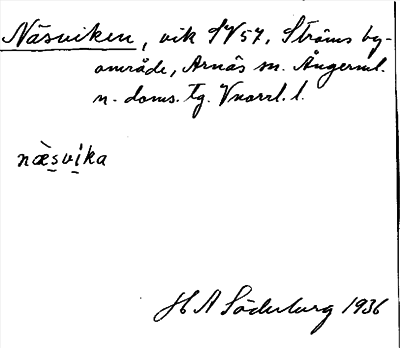 Näsviken, vik SV57, Ströms by-
område, Arnäs sn. Ångerml.
n. doms. tg. Vnorrl. l.
næ̀svika
H A Söderburg 1936